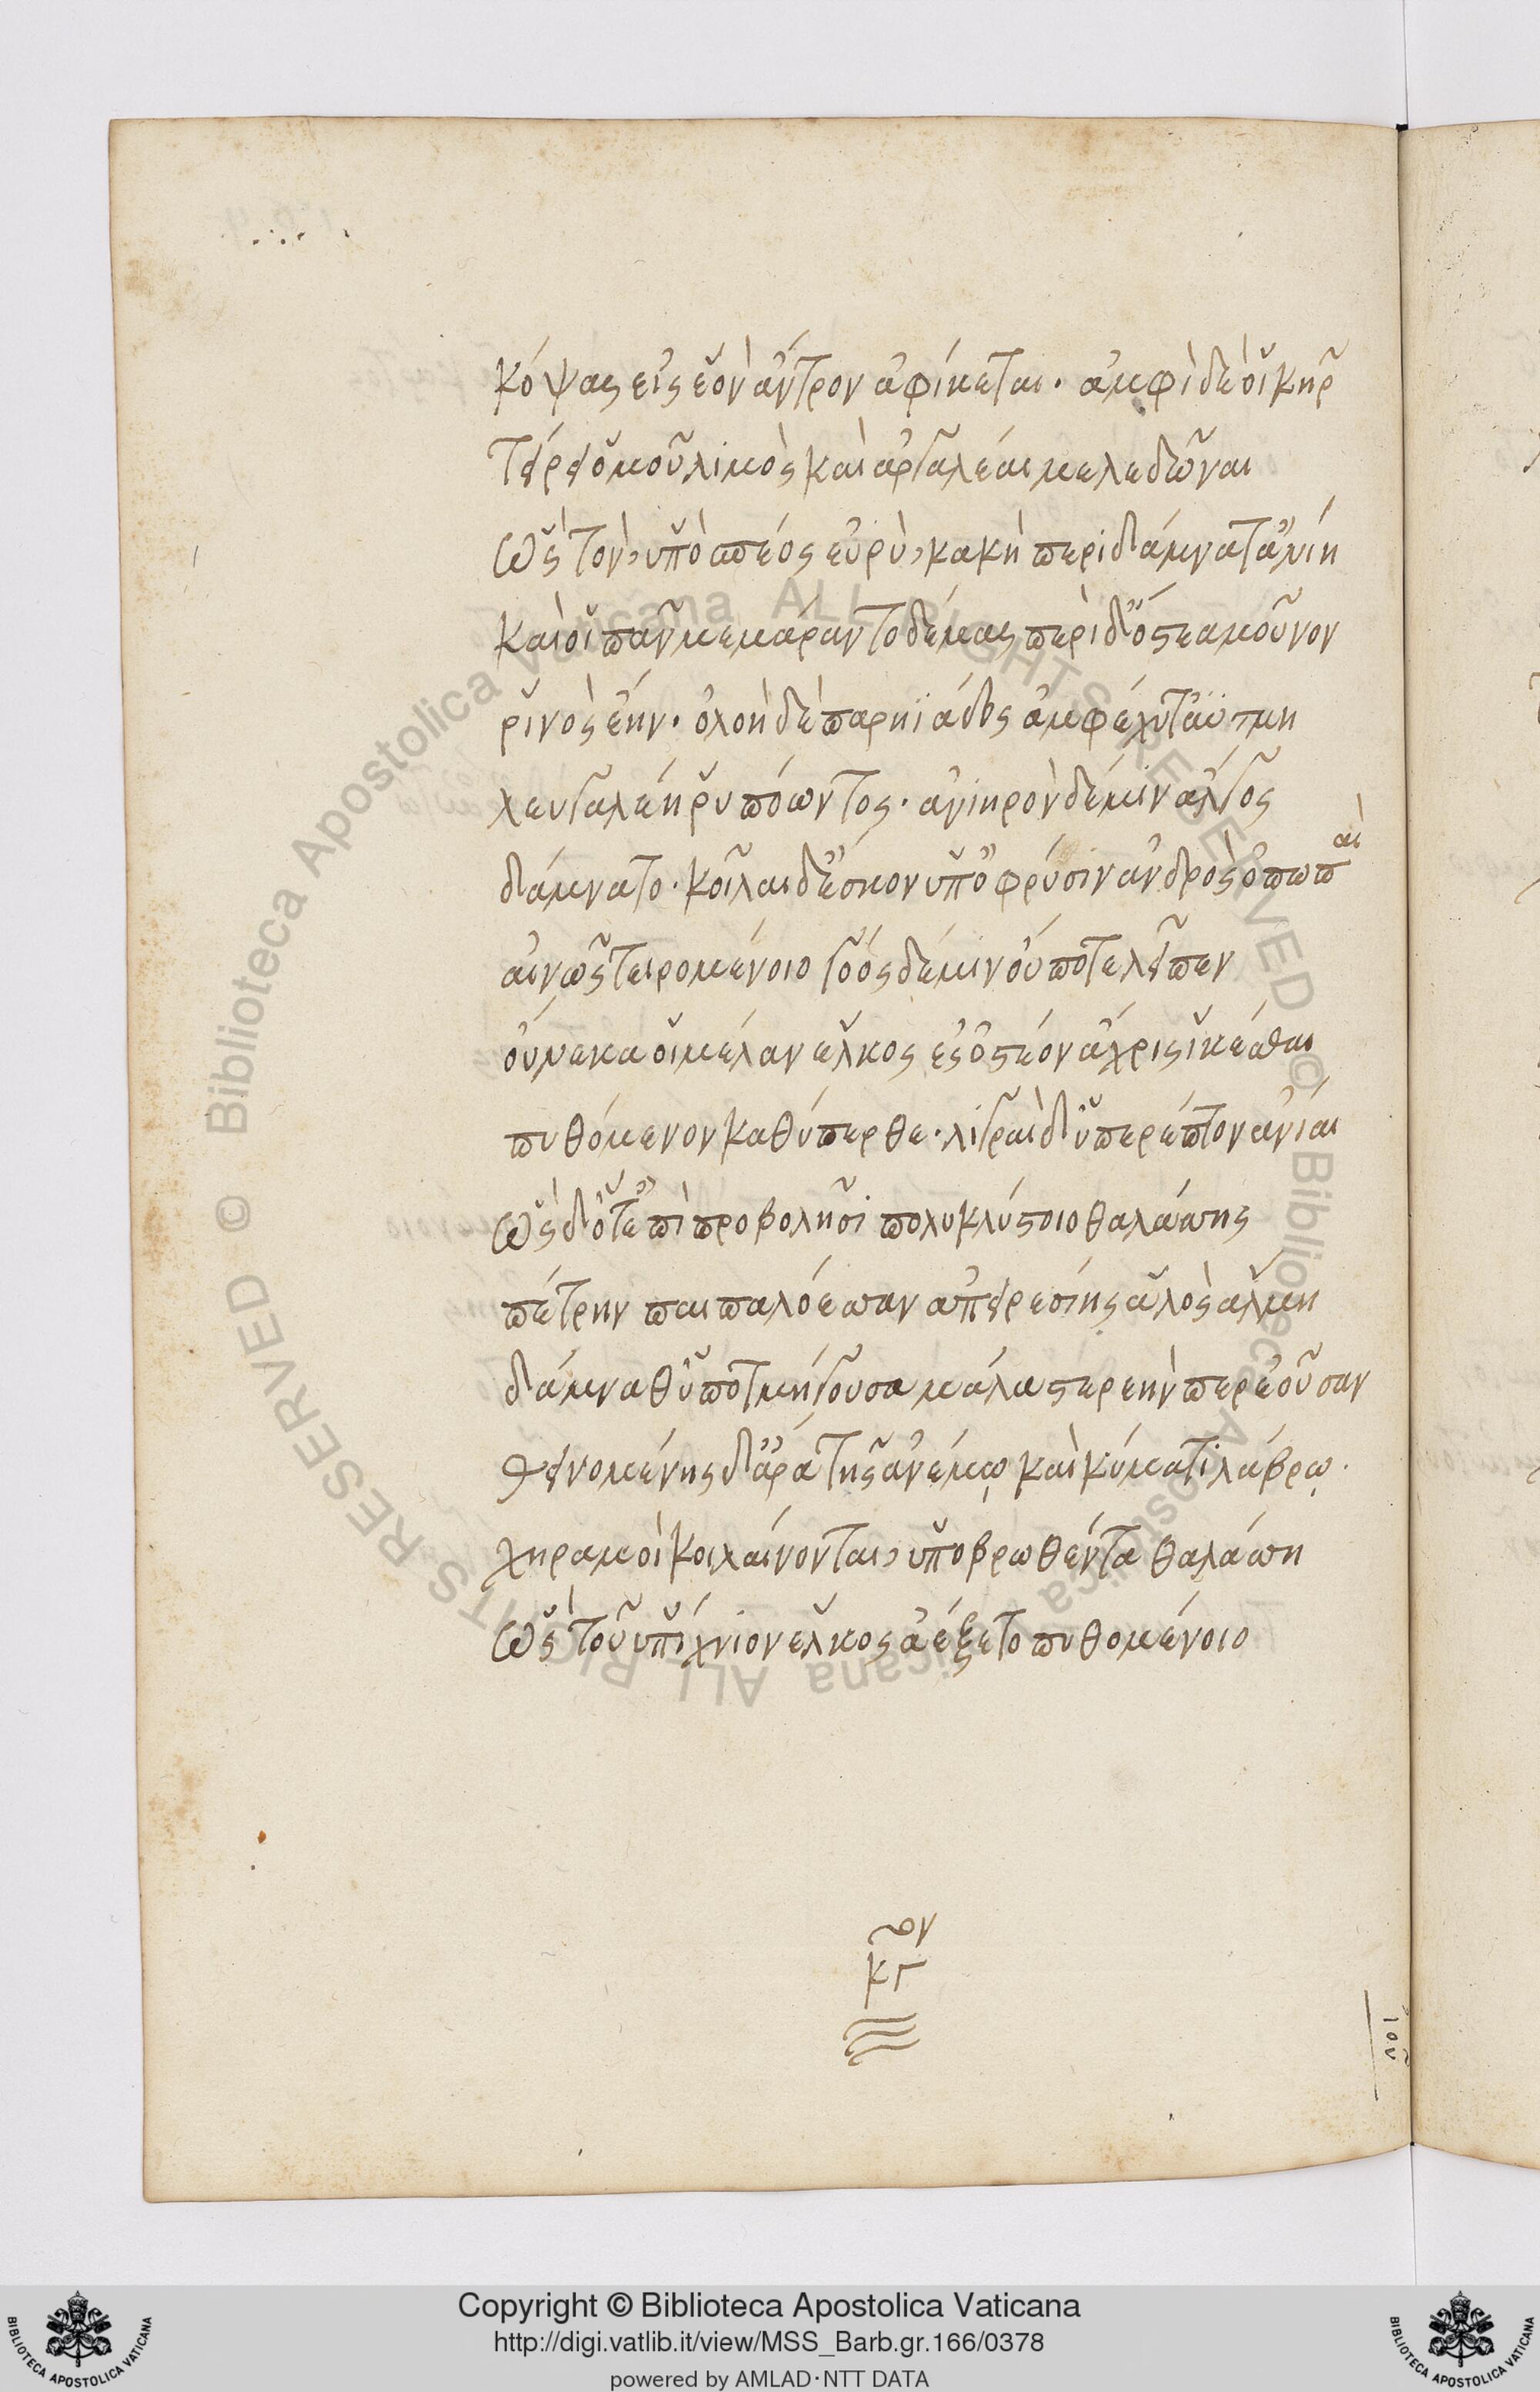 κόψας εἰς ἑὸν ἄντρον ἀφίκεται· ἀμφὶ δέ οἱ κῆρ
τείρει ὁμοῦ λιμὸς καὶ ἀργαλέαι μελεδῶναι
ὣς τὸν, ὑπὸ σπέος εὐρὺ, κακὴ περιδάμνατ' ἀνίη
καί οἱ πᾶν μεμάραντο δέμας περὶ δ' ὀστέα μοῦνον
ῥινὸς ἔην· ὀλοὴ δὲ παρηϊάδας ἀμφέχυτ' αὐχμὴ
λευγαλέη ῥυπόωντος· ἀνιηρὸν δέ μιν ἄλγος
δάμνατο· κοῖλαι δ' ἔσκον ὑπ' ὀφρύσιν ἀνδρὸς ὀπωπαὶ
αἰνῶς τειρομένοιο γόος δέ μιν οὔποτε λεῖπεν
οὕνεκά οἱ μέλαν ἕλκος ἐς ὀστέον ἄχρις ἱκέσθαι
πυθόμενον καθύπερθε· λυγραὶ δ' ὑπέρεπτον ἀνίαι
ὡς δ' ὅτ' ἐπὶ προβολῆσι πολυκλύστοιο θαλάσσης
πέτρην παιπαλόεσσαν ἀπειρεσίης ἁλὸς ἅλμη
δάμναθ' ὑποτμήγουσα μάλα στερεήν περ ἐοῦσαν
θεινομένης δ' ἄρα τῆς ἀνέμῳ καὶ κύματι λάβρῳ·
χηραμοὶ κοιλαίνονται, ὑποβρωθέντα θαλάσση
ὣς τοῦ ὑπίχνιον ἕλκος ἀέξετο πυθομένοιο
κγ
Copyright © Biblioteca Apostolica Vaticana
http://digi.vatlib.it/view/MSS_Barb.gr.166/0378
powered by AMLAD·NTT DATA